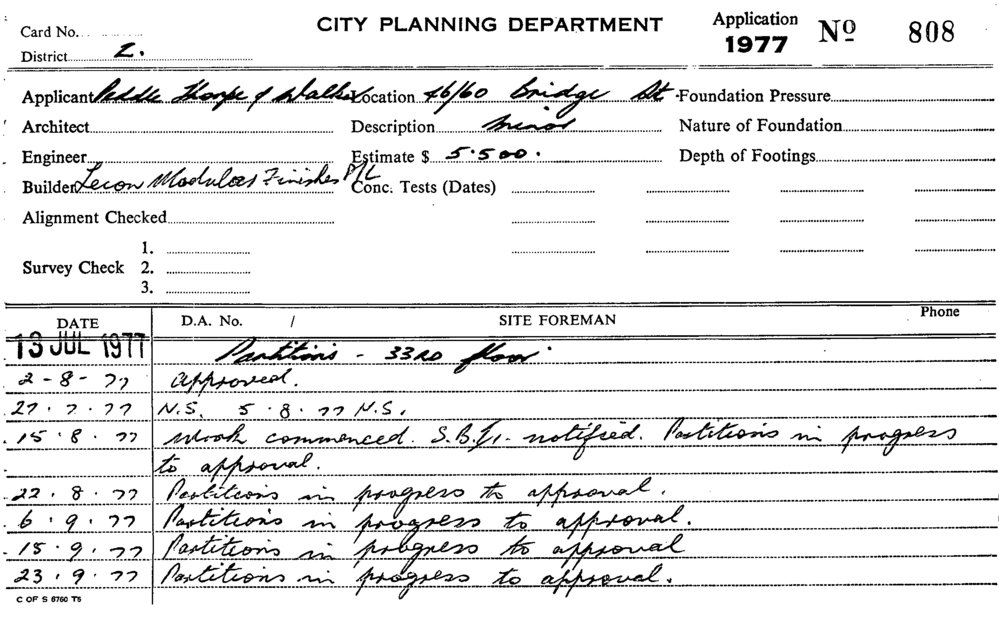 CITY PLANNING DEPARTMENT
Application 1977 Nº 808
Card No.
District 2.
Applicant Peddle Thorpe & Walker Location 46/60 Bridge St. Foundation Pressure
Architect Description Minor Nature of Foundation
Engineer Estimate $ 5.500. Depth of Footings
Builder Modular Finishes P/L Conc. Tests (Dates)
Alignment Checked
1.
Survey Check 2.
3.
DATE D.A. No. / SITE FOREMAN Phone
13 JUL 1977 Partitions - 33RD floor
2-8-77 Approved.
27.7.77 N.S. 5.8.77 N.S.
15.8.77 Work commenced. notified. Partitions in progress
to approval.
22.8.77 Partitions in progress to approval.
6.9.77 Partitions in progress to approval.
15.9.77 Partitions in progress to approval
23.9.77 Partitions in progress to approval.
C OF S 6760 T5